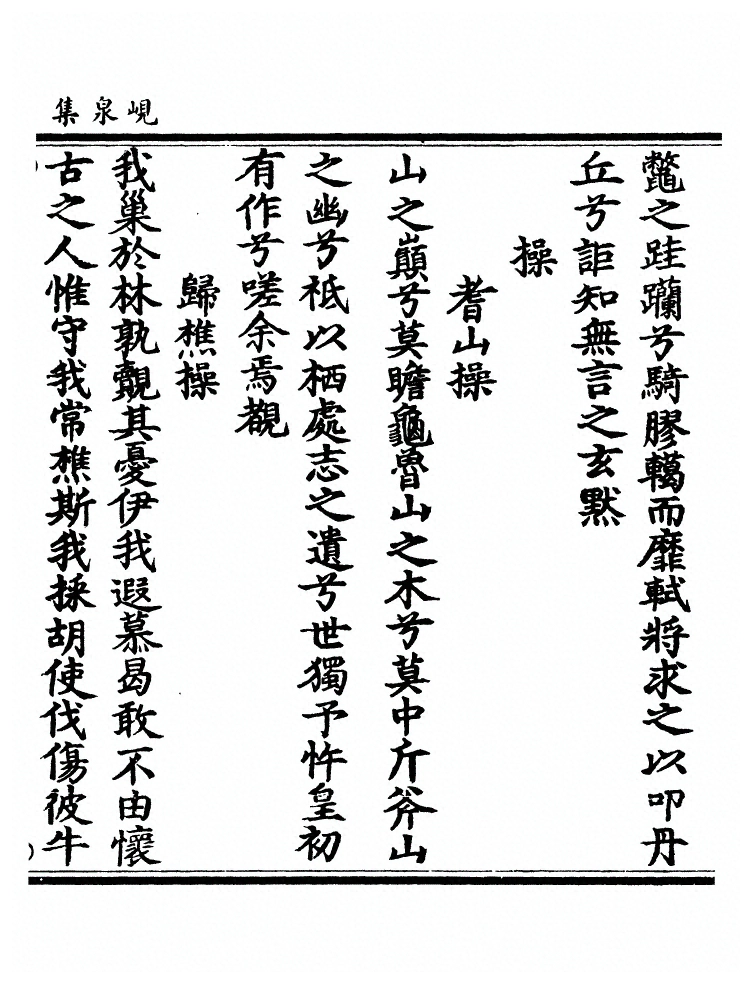 峴泉集
鼈之跬躝兮騎膠轕而靡軾將求之以叩丹
丘兮詎知無言之玄默
操
耆山操
山之巔兮莫瞻龜魯山之木兮莫中斤斧山
之幽兮祗以栖處志之遺兮世獨予忤皇初
有作兮嗟余焉覩
歸樵操
我巢於林孰覿其憂伊我遐慕曷敢不由懷
古之人惟守我常樵斯我採胡使伐傷彼牛